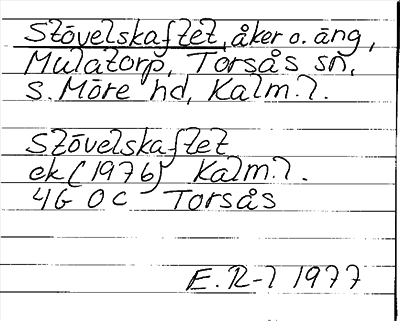 Stövelskaftet, åker o. äng,
Mulatorp, Torsås sn,
S. Möre hd, Kalm. l.
Stövelskaftet
ek (1976) Kalm. l.
4G 0c Torsås
E. R-l 1977